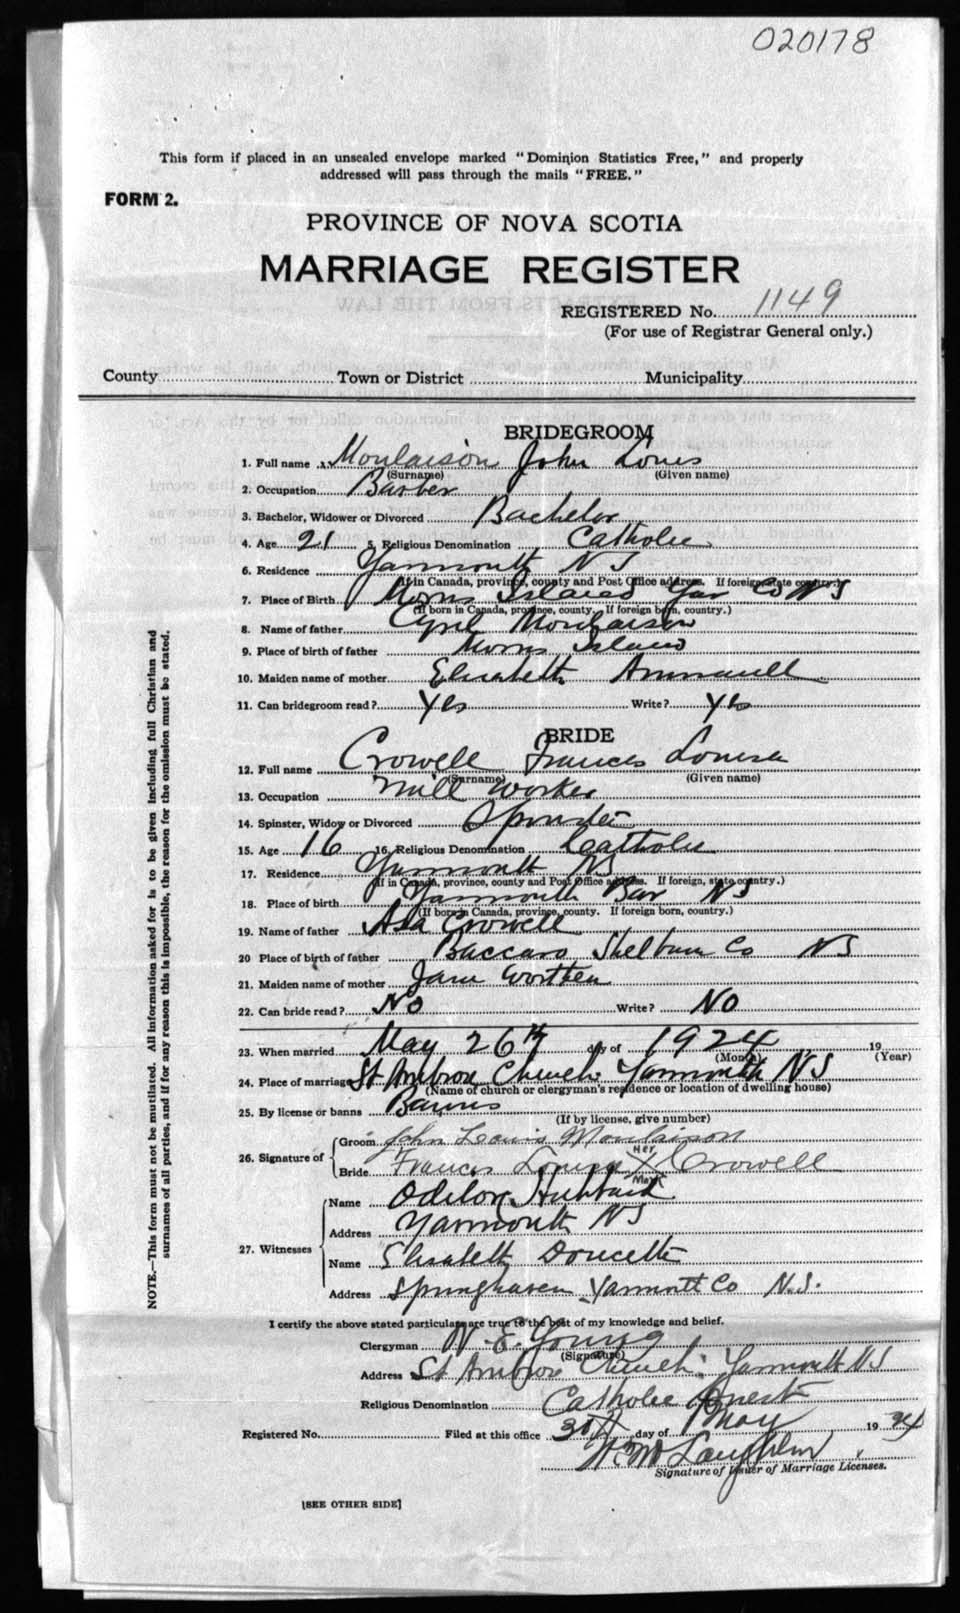 020178
This form if placed in an unsealed envelope marked "Dominion Statistics Free," and properly
addressed will pass through the mails "FREE."
FORM 2.
PROVINCE OF NOVA SCOTIA
MARRIAGE REGISTER
REGISTERED No. 1149
(For use of Registrar General only.)
County Town or District Municipality
BRIDEGROOM
1. Full name x Moulaison John Louis
(Surname) (Given name)
2. Occupation Barber
3. Bachelor, Widower or Divorced Bachelor
4. Age 21 5. Religious Denomination Catholic
6. Residence Yarmouth N S
(If in Canada, province, county and Post Office address. If foreign, state country.)
7. Place of Birth Morris Island Yar Co NS
(If born in Canada, province, county. If foreign born, country.)
8. Name of father Cyril Moulaison
9. Place of birth of father Morris Island
10. Maiden name of mother Elisabeth Amirault
11. Can bridegroom read? Yes Write? Yes
BRIDE
12. Full name Crowell Frances Louisa
(Surname) (Given name)
13. Occupation Mill Worker
14. Spinster, Widow or Divorced Spinster
15. Age 16 16. Religious Denomination Catholic
17. Residence Yarmouth NS
(If in Canada, province, county and Post Office address. If foreign, state country.)
18. Place of birth Yarmouth Bar NS
(If born in Canada, province, county. If foreign born, country.)
19. Name of father Asa Crowell
20 Place of birth of father Baccaro Shelburn Co NS
21. Maiden name of mother Jane Worthen
22. Can bride read? No Write? No
23. When married May 26th day of 1924 19
(Month) (Year)
24. Place of marriage St Ambrose Church Yarmouth NS
(Name of church or clergyman's residence or location of dwelling house)
25. By license or banns Banns
(If by license, give number)
26. Signature of
Groom John Louis Moulaison
Bride Frances Louisa Her X Mark Crowell
27. Witnesses
Name Odilon Hubbard
Address Yarmouth NS
Name Elisabeth Doucette
Address Springhaven Yarmouth Co N.S.
I certify the above stated particulars are true to the best of my knowledge and belief.
Clergyman N. E. Young
(Signature)
Address St Ambrose Church Yarmouth NS
Religious Denomination Catholic Priest
Registered No. Filed at this office 30th day of May 1924
Signature of Issuer of Marriage Licenses.
[SEE OTHER SIDE]
NOTE.—This form must not be mutilated. All information asked for is to be given including full Christian and
surnames of all parties, and if for any reason this is impossible, the reason for the omission must be stated.